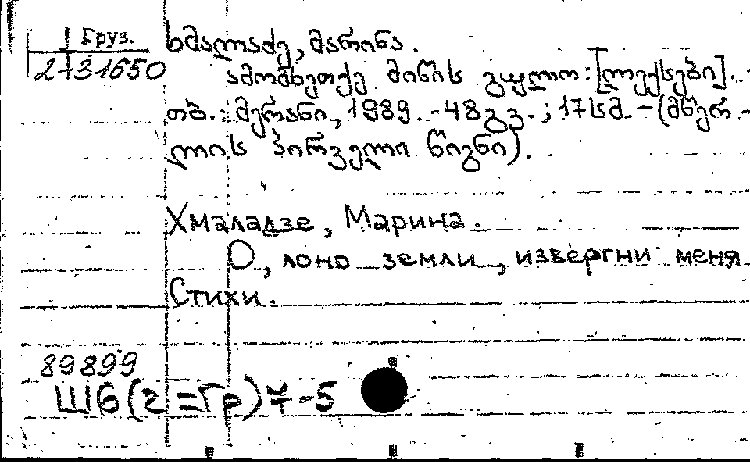 Груз.
2-31650
ხმალაძე, მარინა.
ამომხეთქე მიწის გულო: [ლექსები]. -
თბ.: მერანი, 1989. - 48 გვ.; 17 სმ. - (მწერ-
ლის პირველი წიგნი).
Хмаладзе, Марина.
О, лоно земли, извергни меня
Стихи.
89899
Ш6(2=Гр)7-5